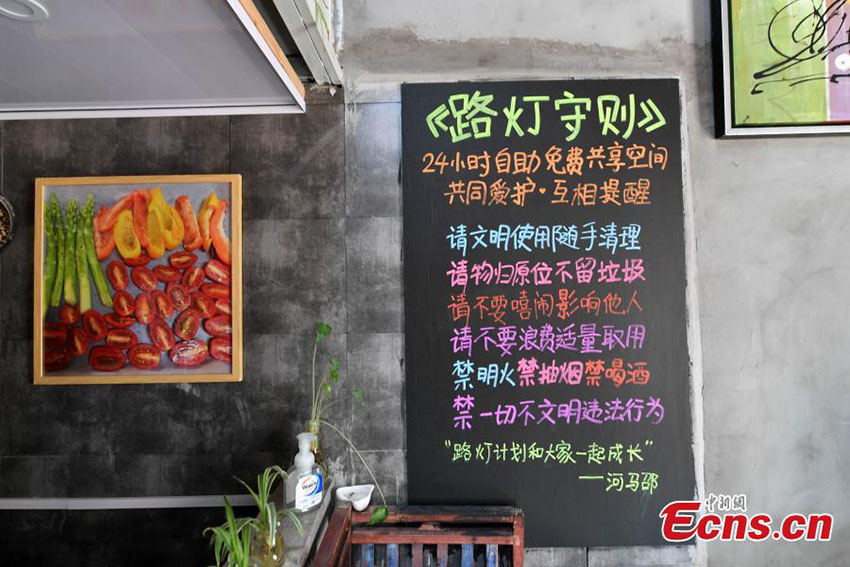 《路灯守则》
24小时自助免费共享空间
共同爱护·互相提醒
请文明使用随手清理
请物归原位不留垃圾
请不要嘻闹影响他人
请不要浪费适量取用
禁明火禁抽烟禁喝酒
禁一切不文明违法行为
"路灯计划和大家一起成长"
——河马邵
中新网
Ecns.cn